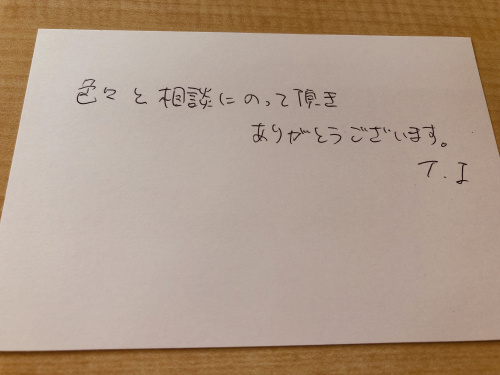 色々と相談にのって頂き
ありがとうございます。
T.I